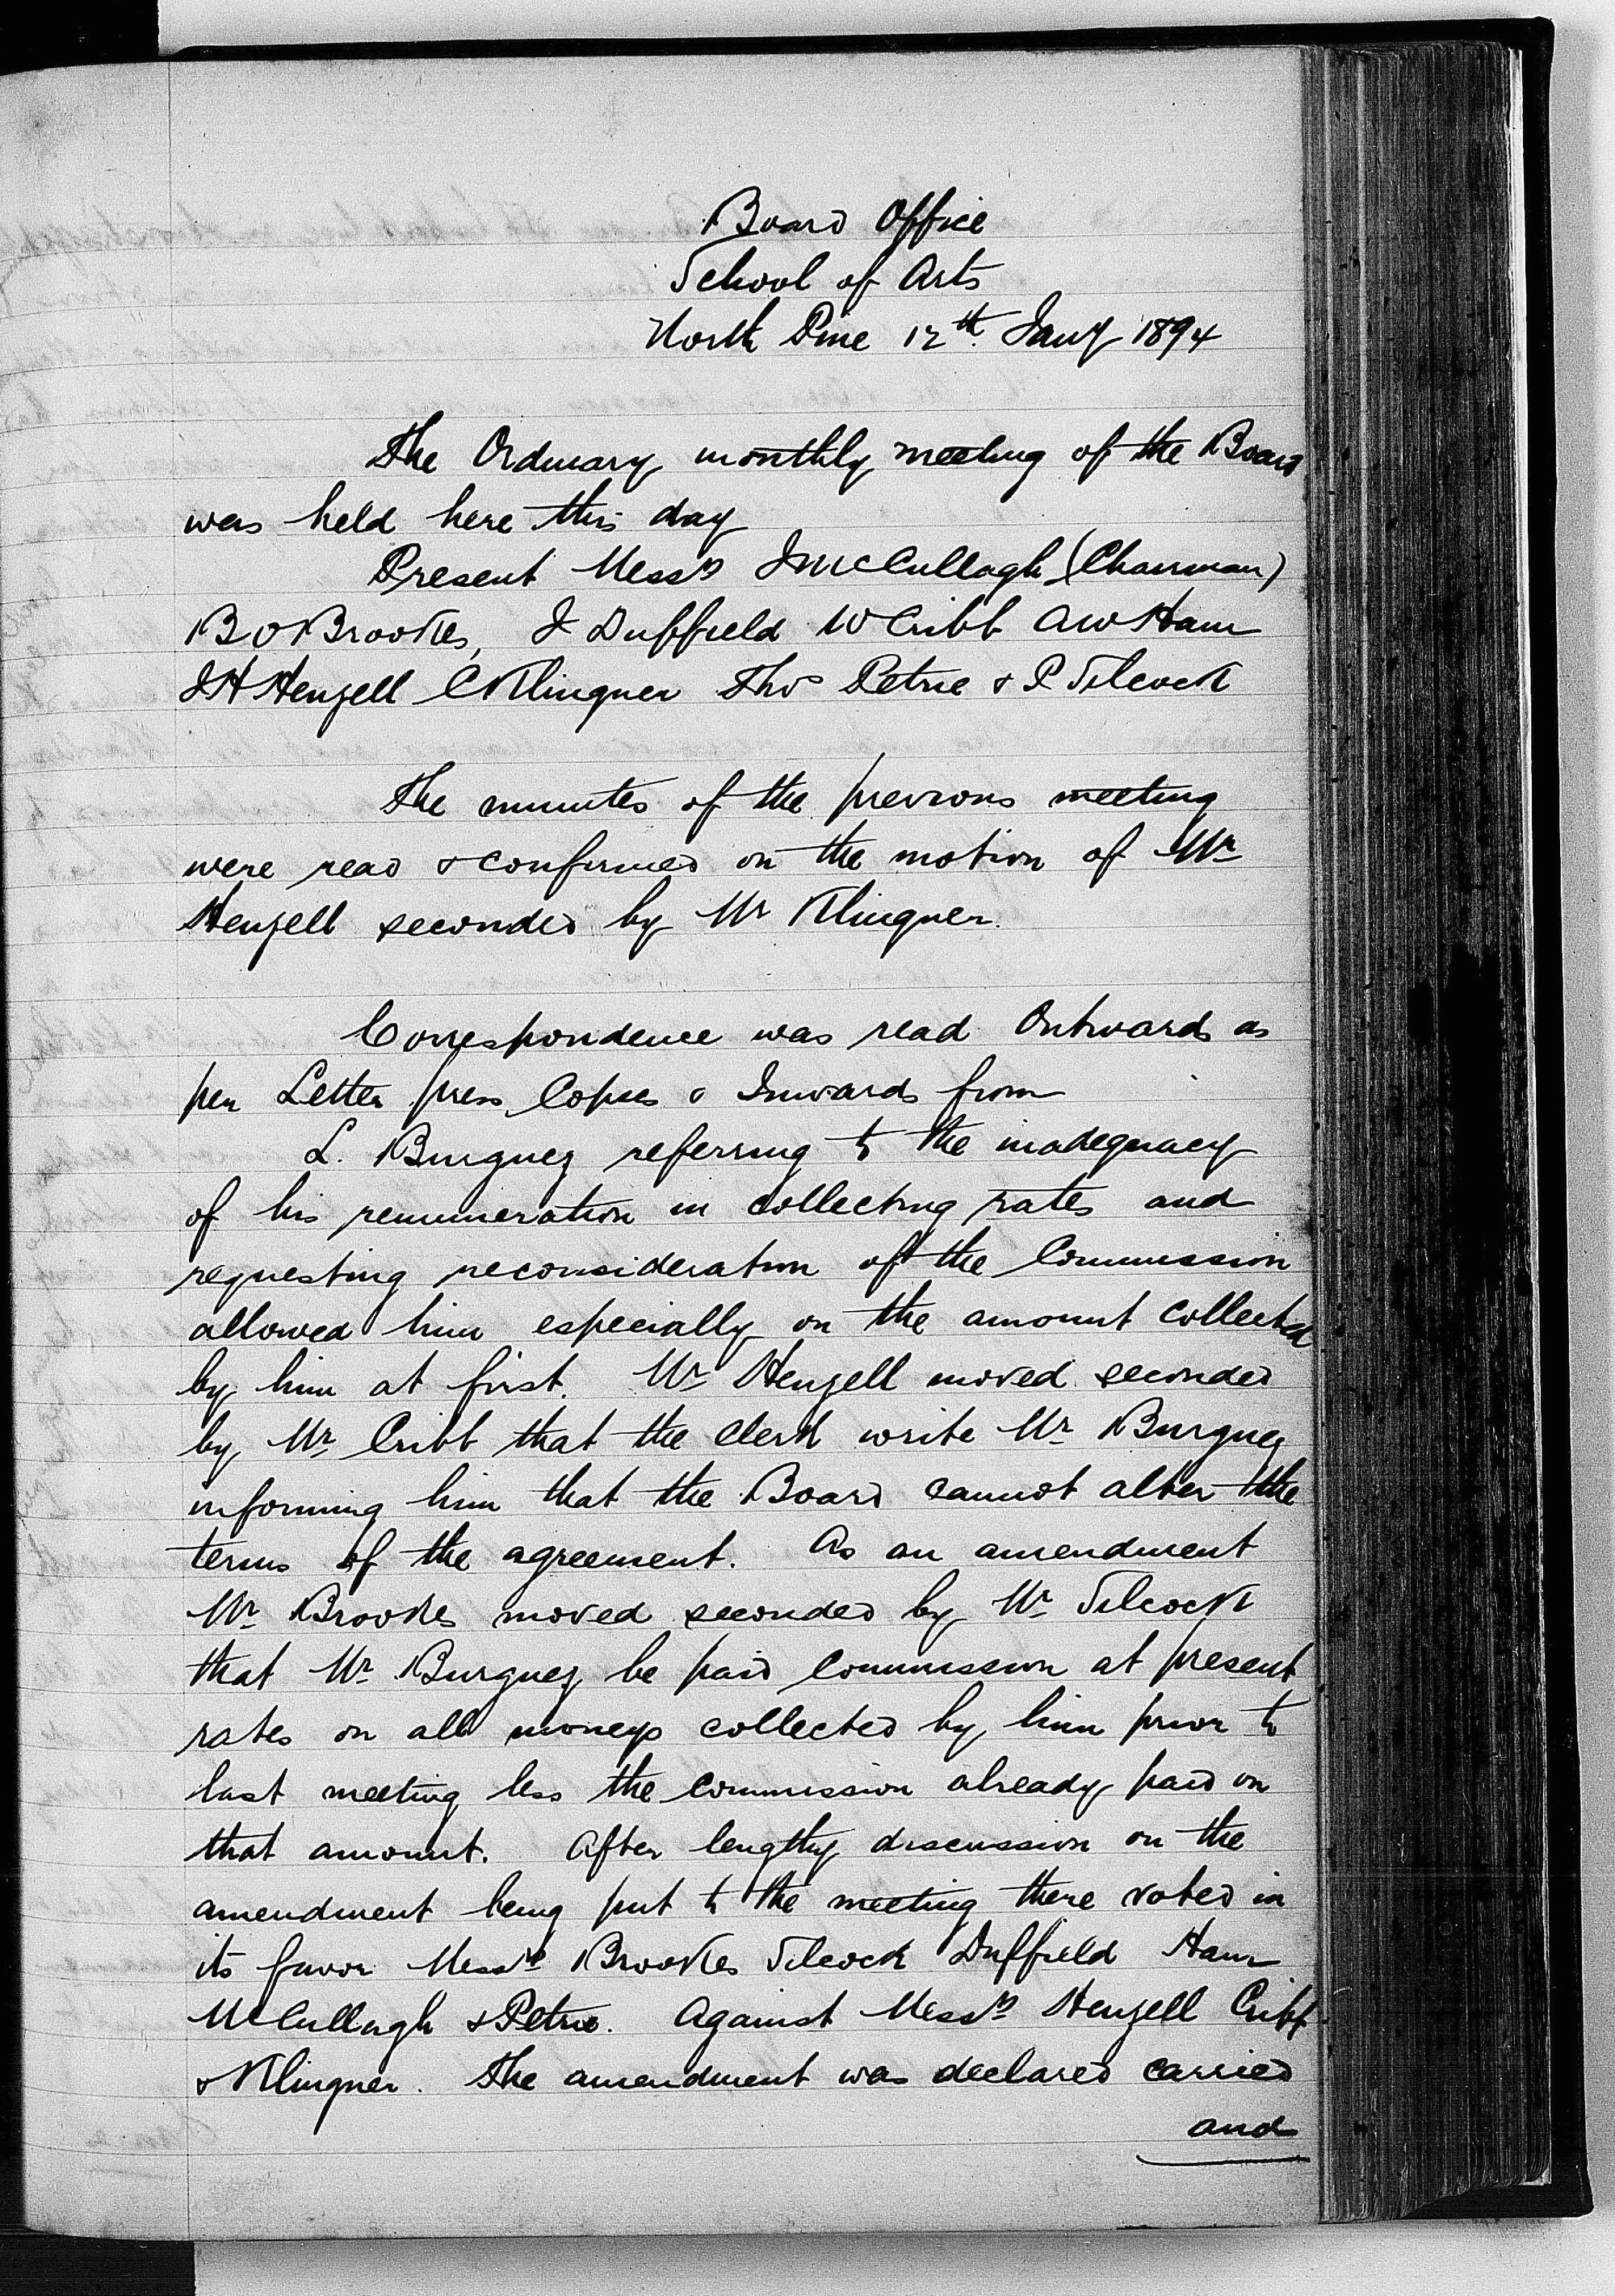 Board Office
School of Arts
North Pine 12th. Jany 1894
The Ordinary monthly meeting of the Board
was held here this day
Present Messrs J McCullagh (Chairman)
B O Brookes, J Duffield W Cribb A W Ham
J H Henzell C Klingner Thos Petrie & P Silcock
The minutes of the previous meeting
were read & confirmed on the motion of Mr
Henzell seconded by Mr Klingner.
Correspondence was read Outwards as
per Letter press Copies & Inwards from
L. Burguez referring to the inadequacy
of his remuneration in collecting rates and
requesting reconsideration of the Commission
allowed him especially on the amount collected
by him at first. Mr Henzell moved seconded
by Mr Cribb that the Clerk write Mr Burguez
informing him that the Board cannot alter the
terms of the agreement. As an amendment
Mr Brookes moved seconded by Mr Silcock
that Mr Burguez be paid Commission at present
rates on all moneys collected by him prior to
last meeting less the Commission already paid on
that amount. After lengthy discussion on the
amendment being put to the meeting there voted in
its favor Messrs Brookes Silcock Duffield Ham
McCullagh & Petrie. Against Messrs Henzell Cribb
& Klingner. The amendment was declared carried
and